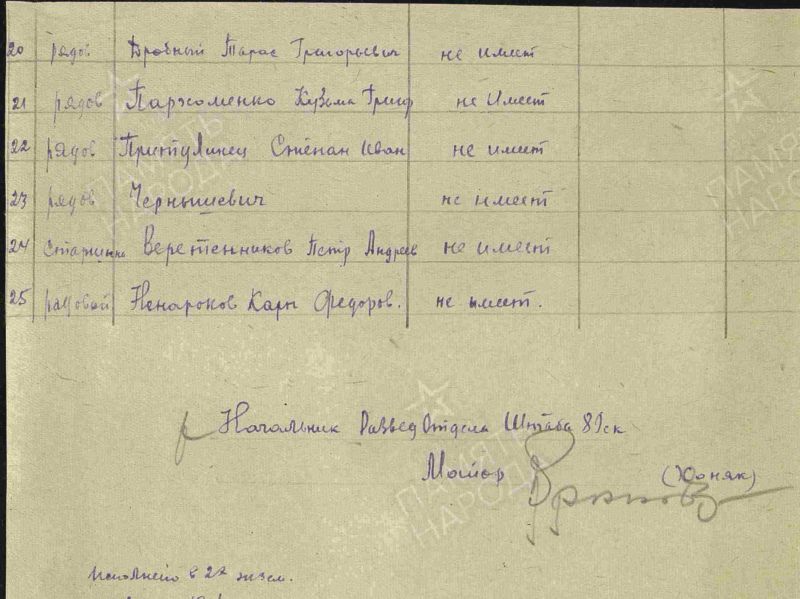 20 рядов Дробный Тарас Григорьевич не имеет
21 рядов Пархоменко Кузьма Григ не имеет
22 рядов Притулинец Степан Иван не имеет
23 рядов Чернышевич не имеет
24 Старшина Веретенников Петр Андреев не имеет
25 рядовой Ненароков Карп Федоров. не имеет.
Начальник РазведОтдела Штаба 8 Гск
Майор (Коняк)
Исполнено в 2х экзем.
ПАМЯТЬ НАРОДА
ПАМЯТЬ НАРОДА
ПАМЯТЬ НАРОДА